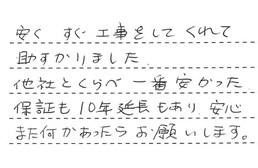 安く すぐ 工事をして くれて
助すかりました.
他社とくらべ 一番 安かった.
保証も 10年 延長もあり 安心
また何かあったら お願いします。